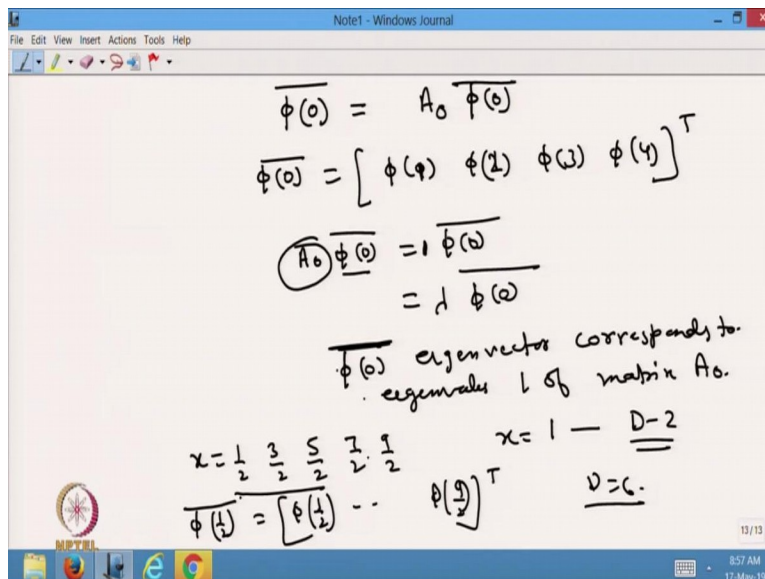 Note1 - Windows Journal
File Edit View Insert Actions Tools Help
ϕ̅(̅0̅)̅ = A₀ ϕ̅(̅0̅)̅
ϕ̅(̅0̅)̅ = [ ϕ(1) ϕ(2) ϕ(3) ϕ(4) ]ᵀ
A₀ ϕ̅(̅0̅)̅ = 1 ϕ̅(̅0̅)̅
= λ ϕ̅(̅0̅)̅
ϕ̅(̅0̅)̅ eigenvector corresponds to
eigenvalue 1 of matrix A₀.
x = 1 — D-2
x = 1/2 3/2 5/2 7/2 9/2
D=6.
ϕ̅(̅1̅/̅2̅)̅ = [ϕ(1/2) -- ϕ(9/2)]ᵀ
NPTEL
13/13
8:57 AM